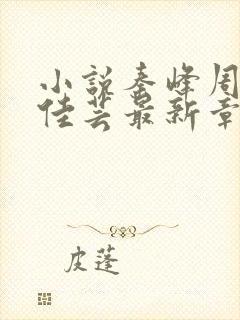 小说秦峰周
佳芸最新章
皮蓬